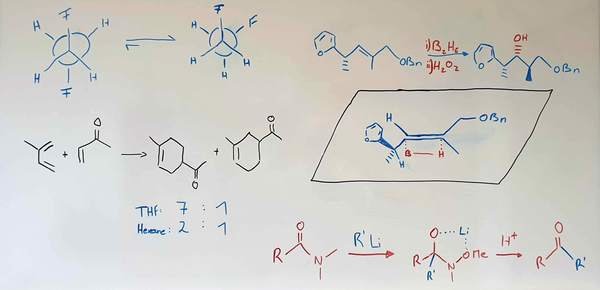 F
H H
H H
F
F
F
H H
H H
O OBn
i) B₂H₆
ii) H₂O₂
OH
O OBn
H OBn
O
B H
H
O
+
+
O
O
THF: 7 : 1
Hexane: 2 : 1
O
R N
R'Li
O Li
R
R' N OMe
H⁺
O
R R'